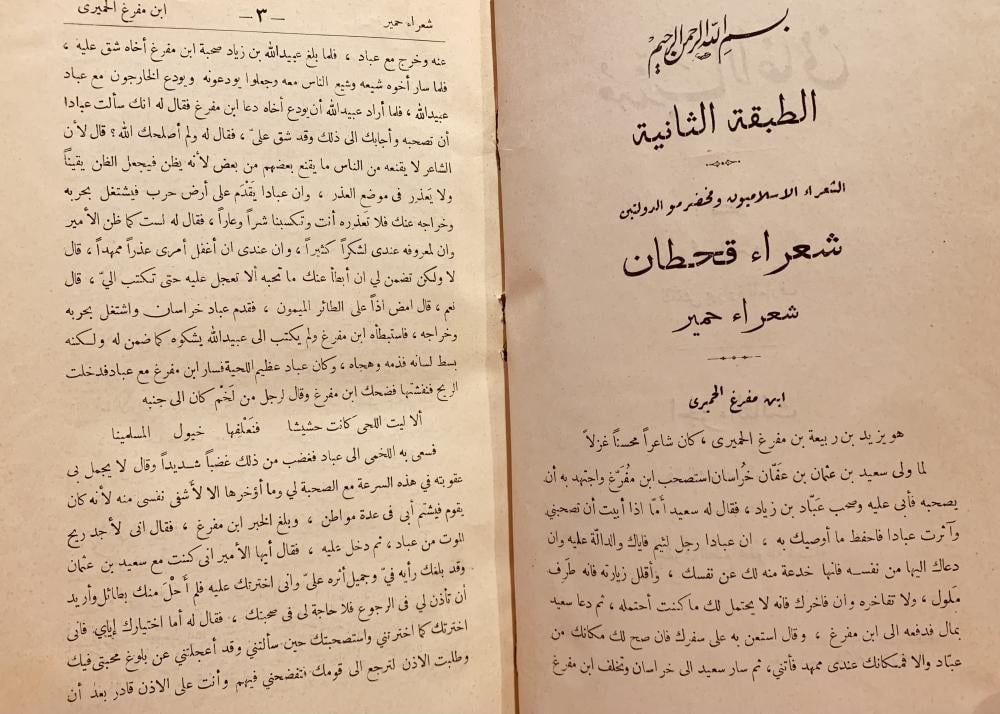 بسم الله الرحمن الرحيم
الطبقة الثانية
الشعراء الاسلاميون ومخضرمو الدولتين
شعراء قحطان
شعراء حمير
ابن مفرغ الحميرى
هو يزيد بن ربيعة بن مفرغ الحميرى ، كان شاعراً محسناً غزلاً
لما ولى سعيد بن عثمان بن عفّان خُراسان استصحب ابن مُفَرّغ واجتهد به أن
يصحبه فأبى عليه وصحب عبّاد بن زياد ، فقال له سعيد أمّا اذا أبيت أن تصحبنى
وآثرت عبادا فاحفظ ما أوصيك به ، ان عبادا رجل لئيم فاياك والدالّة عليه وان
دعاك اليها من نفسه فانها خدعة منه لك عن نفسك ، وأقلل زيارته فانه طَرِف
مَلول ، ولا تفاخره وان فاخرك فانه لا يحتمل لك ما كنت أحتمله ، ثم دعا سعيد
بمال فدفعه الى ابن مفرغ ، وقال استعن به على سفرك فان صح لك مكانك من
عبّاد والا فمكانك عندى ممهد فأتنى ، ثم سار سعيد الى خراسان وتخلف ابن مفرغ
شعراء حمير
— ٣ —
ابن مفرغ الحميرى
عنه وخرج مع عباد ، فلما بلغ عبيدالله بن زياد صحبة ابن مفرغ أخاه شق عليه ،
فلما سار أخوه شيعه وشيع الناس معه وجعلوا يودعونه ويودع الخارجون مع عباد
عبيدالله ، فلما أراد عبيدالله أن يودع أخاه دعا ابن مفرغ فقال له انك سألت عبادا
أن تصحبه وأجابك الى ذلك وقد شق علىّ ، فقال له ولم أصلحك الله ؟ قال لأن
الشاعر لا يقنعه من الناس ما يقنع بعضهم من بعض لأنه يظن فيجعل الظن يقيناً
ولا يَعذر فى موضع العذر ، وان عبادا يقْدَم على أرض حرب فيشتغل بحربه
وخراجه عنك فلا تَعذره أنت وتَكسبنا شراً وعاراً ، فقال له لست كما ظن الأمير
وان لمعروفه عندى لشكراً كثيراً ، وان عندى ان أغفل أمرى عذراً ممهداً ، قال
لا ولكن تضمن لي ان أبطأ عنك ما تحبه ألا تعجل عليه حتى تكتب اليّ ، قال
نعم ، قال امض اذاً على الطائر الميمون ، فقدم عباد خراسان واشتغل بحربه
وخراجه ، فاستبطأه ابن مفرغ ولم يكتب الى عبيدالله يشكوه كما ضمن له ولكنه
بسط لسانه فذمه وهجاه ، وكان عباد عظيم اللحية فسار ابن مفرغ مع عباد فدخلت
الريح فنفشتها فضحك ابن مفرغ وقال لرجل من لَخْم كان الى جنبه
ألا ليت اللحى كانت حشيشا فنَعْلِفها خيول المسلمينا
فسعى به اللخمى الى عباد فغضب من ذلك غضباً شديداً وقال لا يجمل بى
عقوبته في هذه السرعة مع الصحبة لي وما أؤخرها الا لأشفى نفسى منه لأنه كان
يقوم فيشتم أبى فى عدة مواطن ، وبلغ الخبر ابن مفرغ ، فقال انى لأجد ريح
الموت من عباد ، ثم دخل عليه ، فقال أيها الأمير انى كنت مع سعيد بن عثمان
وقد بلغك رأيه فيّ وجميل أثره علىّ وانى اخترتك عليه فلم أَحْلَ منك بطائل وأريد
أن تأذن لي فى الرجوع فلا حاجة لى فى صحبتك ، فقال له أما اختيارك إياي فانى
اخترتك كما اخترتني واستصحبتك حين سألتني وقد أعجلتني عن بلوغ محبتى فيك
وطلبت الاذن لترجع الى قومك فتفضحني فيهم وأنت على الاذن قادر بعد أن